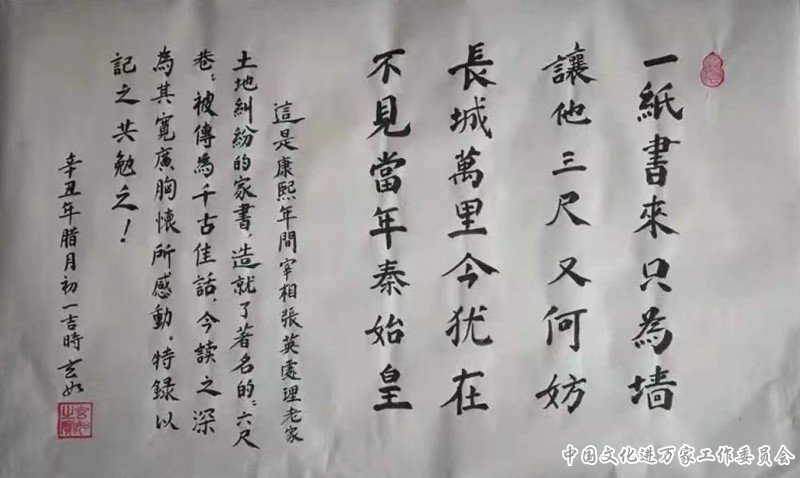 一紙書來只為墙
讓他三尺又何妨
長城萬里今犹在
不見當年秦始皇
這是康熙年間宰相張英處理老家
土地糾紛的家書，造就了著名的“六尺
巷”被傳為千古佳話，今讀之深
為其寬廣胸懷所感動，特録以
記之共勉之！
辛丑年腊月初一吉時 玄如
中国文化进万家工作委员会